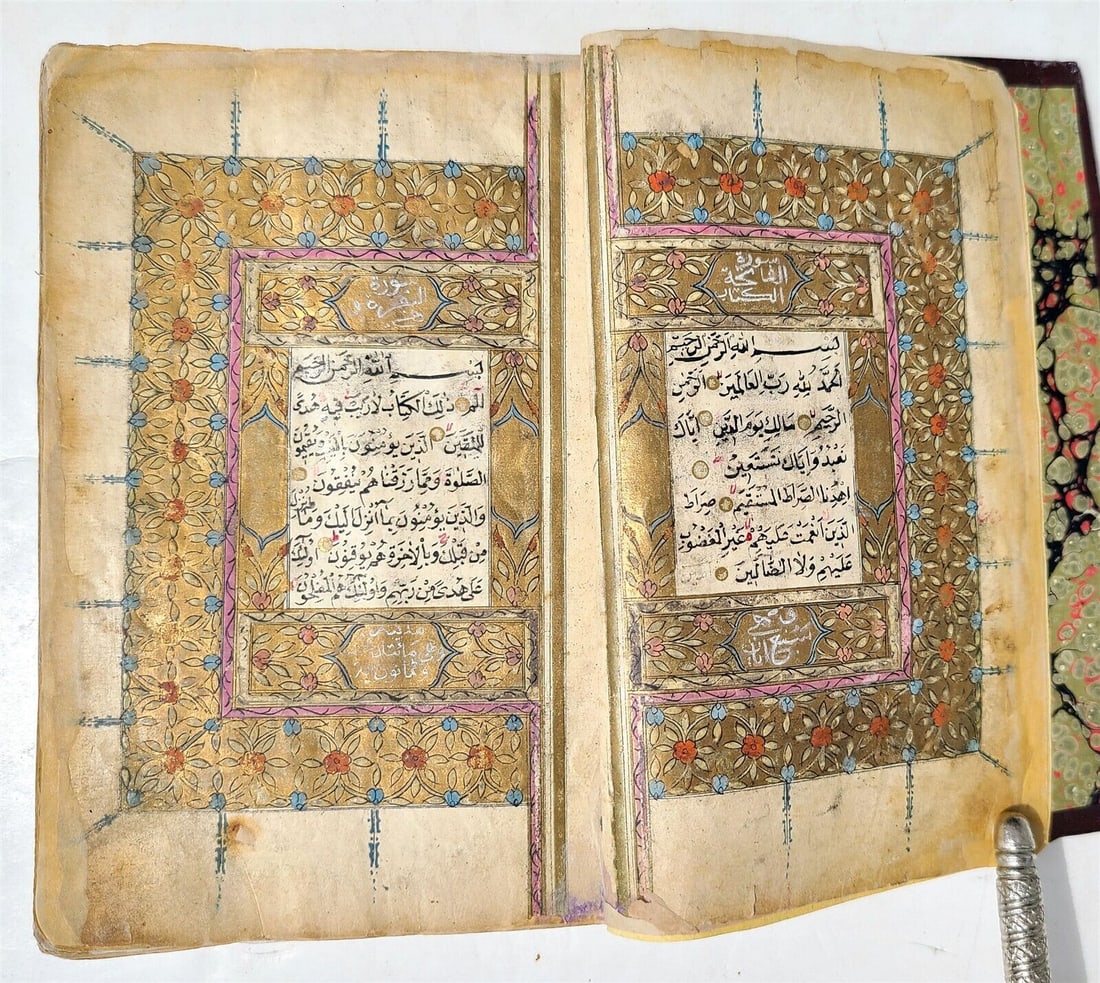 سورة
الفاتحة
الكتاب
بسم الله الرحمن الرحيم
الحمد لله رب العالمين الرحمن
الرحيم مالك يوم الدين اياك
نعبد واياك نستعين
اهدنا الصراط المستقيم صراط
الذين انعمت عليهم غير المغضوب
عليهم ولا الضالين
وهي
سبع آيات
سورة
البقرة
بسم الله الرحمن الرحيم
الم ذلك الكتاب لا ريب فيه هدى
للمتقين الذين يؤمنون بالغيب ويقيمون
الصلوة ومما رزقناهم ينفقون
والذين يؤمنون بما انزل اليك وما انزل
من قبلك وبالآخرة هم يوقنون اولئك
على هدى من ربهم واولئك هم المفلحون
مدنية
وهي مائتان
وثمانون